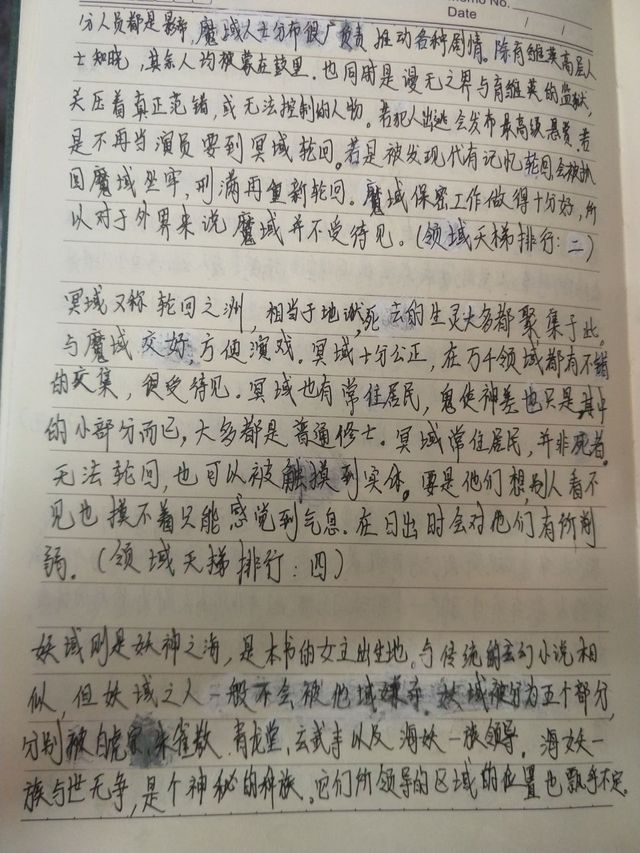 Memo No.
Date / /
分人员都是影帝，魔域人士分布很广负责推动各种剧情。除育维英高层人
士知晓，其余人均被蒙在鼓里。也同时是谩无之界与育维英的监狱，
关压着真正范错，或无法控制的人物。若犯人出逃会发布最高级悬赏。若
是不再当演员要到冥域轮回。若是被发现代有记忆轮回会被抓
回魔域坐牢，刑满再重新轮回。魔域保密工作做得十分好，所
以对于外界来说魔域并不受待见。（领域天梯排行：二）
冥域又称轮回之洲，相当于地狱，死去的生灵大多都聚集于此。
与魔域交好，方便演戏。冥域十分公正，在万千领域都有不错
的交集，很受待见。冥域也有常住居民，鬼使神差也只是其中
的小部分而已，大多都是普通修士。冥域常住居民，并非死者。
无法轮回，也可以被触摸到实体。要是他们想别人看不
见也摸不着只能感觉到气息。在日出时会对他们有所削
弱。（领域天梯排行：四）
妖域则是妖神之海，是本书的女主出生地。与传统的玄幻小说相
似，但妖域之人一般不会被他域嫌弃。妖域被分为五个部分，
分别被白虎家、朱雀教、青龙堂、玄武寺以及海妖一族领导。海妖一
族与世无争，是个神秘的种族。它们所领导的区域的位置也飘乎不定。